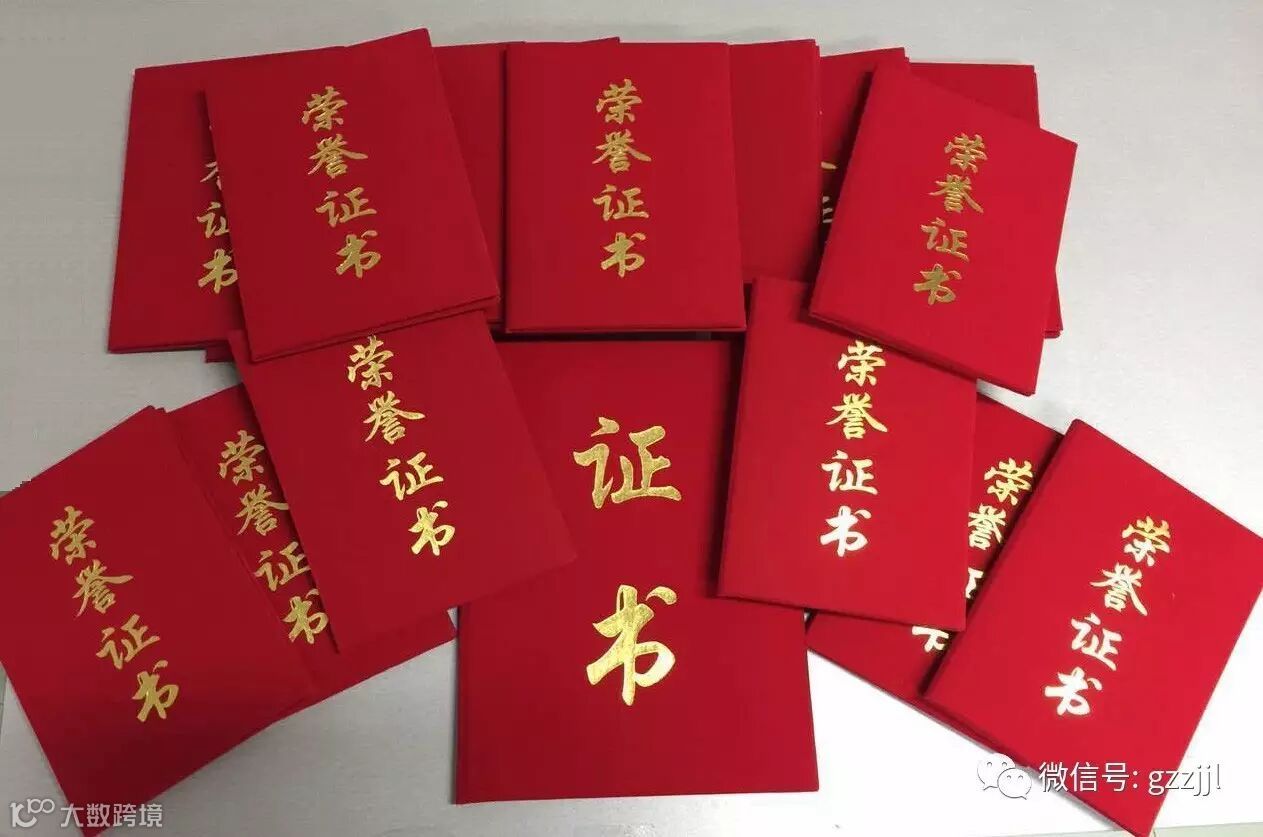 荣誉证书
荣誉证书
荣誉证书
证书
荣誉证书
荣誉证书
荣誉证书
荣誉证书
荣誉证书
荣誉证书
证书
微信号: gzzjjl
大数跨境